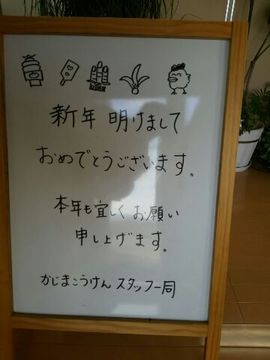 新年 明けまして
おめでとうございます。
本年も宜しくお願い
申し上げます。
かじまこうけん スタッフ一同